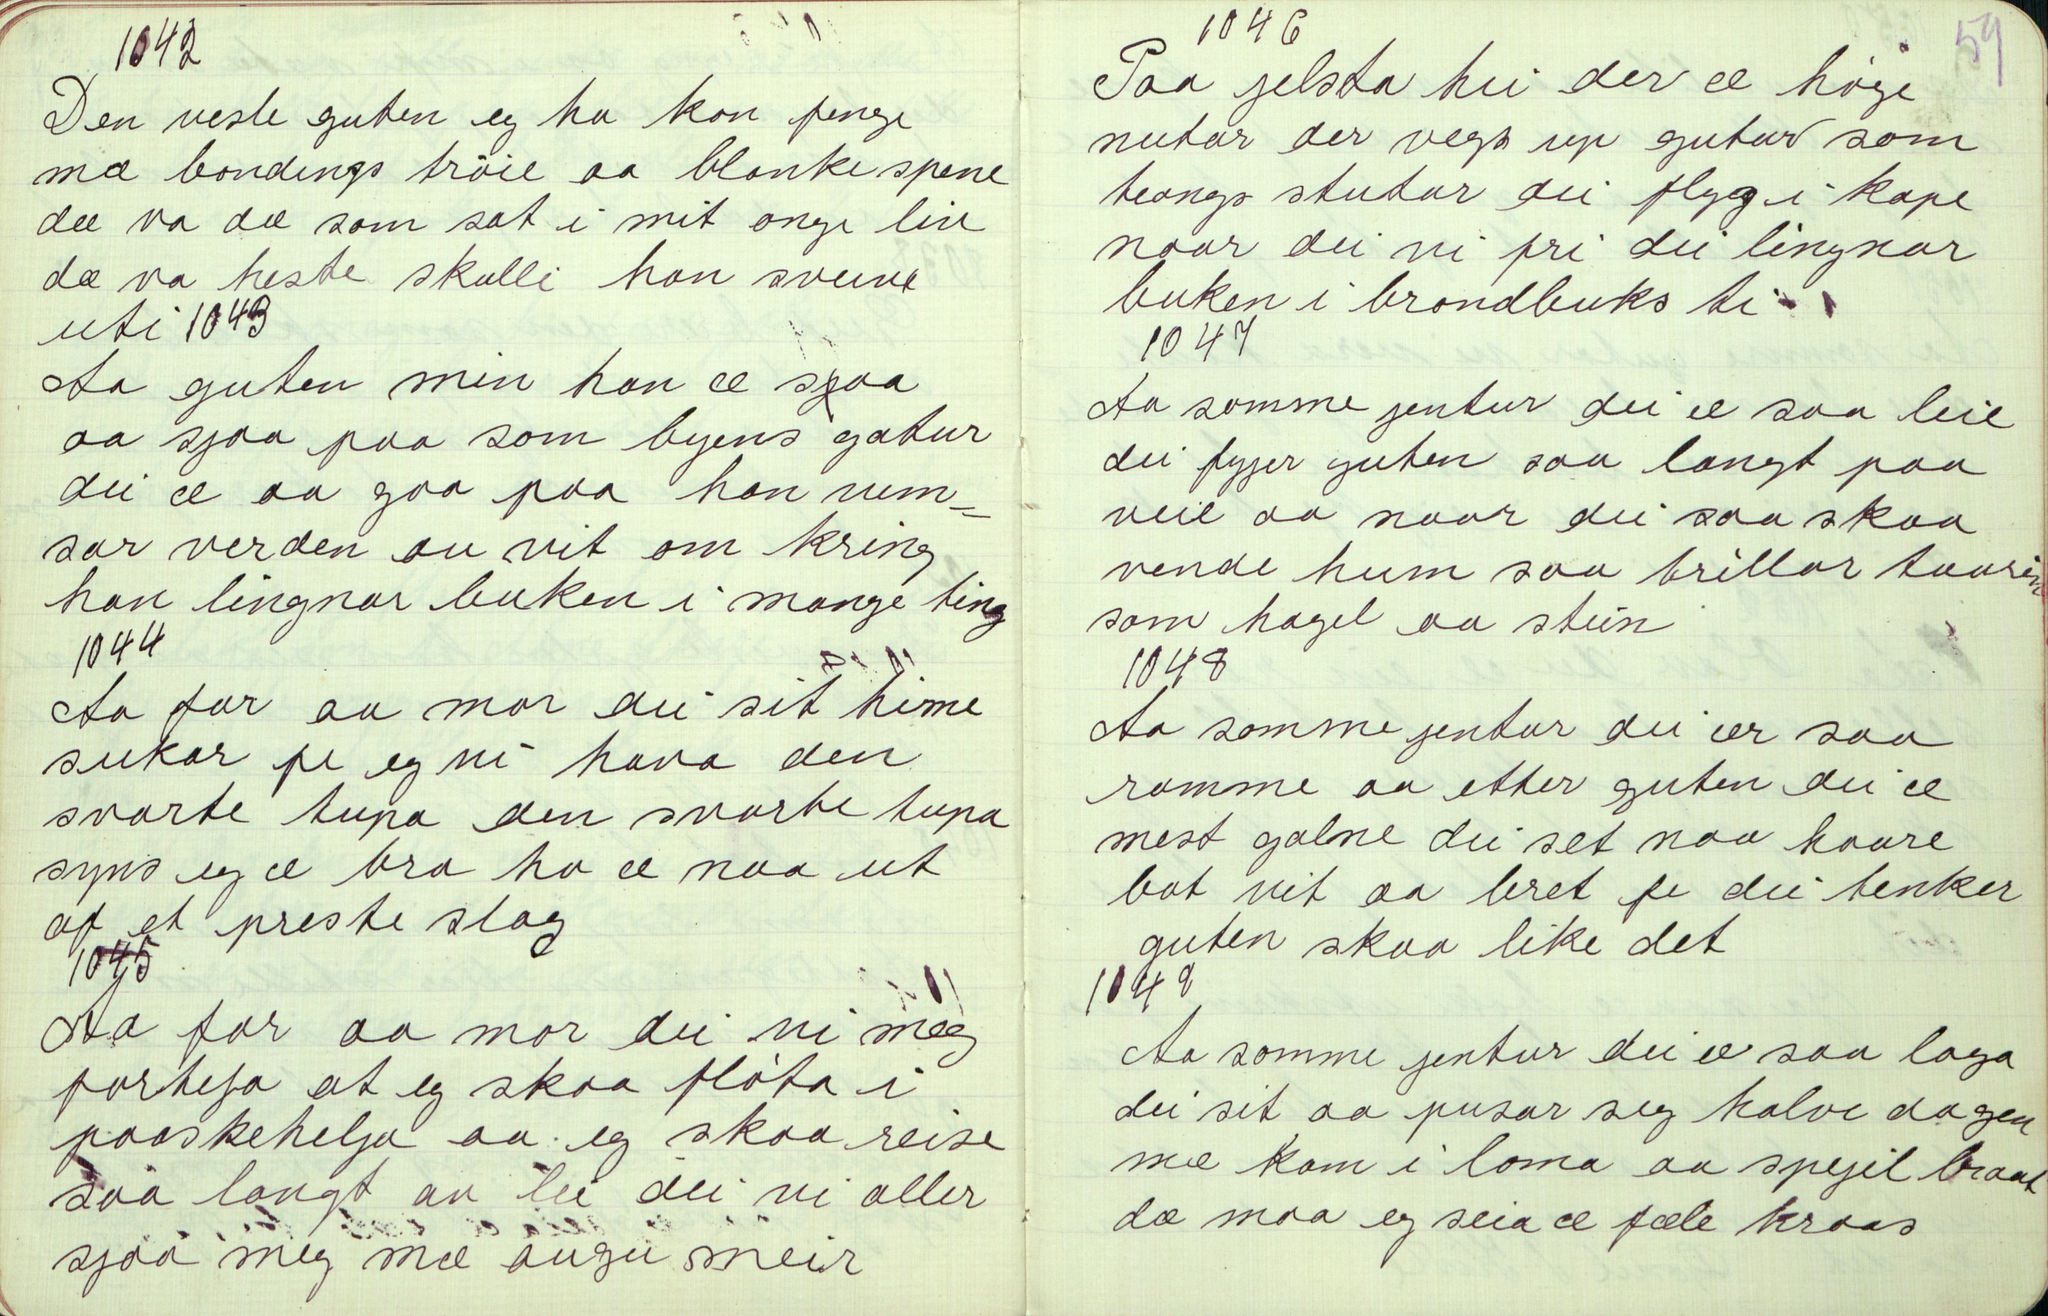 1042
Den vesle guten eg ha kan fenge
mæ bondings tröie aa blanke spene
dæ va dæ som sat i mit onge liv
dæ va heste skulli han sveive
uti 1043
Aa guten min han æ sjaa
aa sjaa paa som byens gatur
dei æ aa gaa paa han vim=
sar verden au vit om kring
han lingnar buken i mange ting
1044
Aa far aa mor dei sit heime
sukar fe eg vi hava den
svarte tupa den svarte tupa
syns eg æ bra ho æ naa ut
af et preste slag
1045
Aa far aa mor dei vi meg
fortelja at eg skaa fløta i
paaskehelja aa eg skaa reise
saa langt av lei dei vi aller
sjaa meg mæ augu meir
54
1046
Paa jelsta hei der æ höge
nutar der vegs up gutar som
teangs stutar dei flyg i kape
naar dei vi fri dei lingnar
buken i brondbuks ti
1047
Aa somme jentur dei æ saa leie
dei fyjer guten saa langt paa
veie aa naar dei saa skaa
vende hum saa trillar taarin
som hagel aa stein
1048
Aa somme jentur dei ær saa
ramme aa etter guten dei æ
mest galne dei set naa haare
bat vit aa bret fe dei tenker
guten skaa like det
1049
Aa somme jentur dei æ saa laga
dei sit aa pusar seg halve dagen
mæ kam i loma aa spejel braat
dæ maa eg seia æ fæle kraas